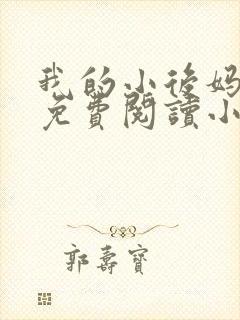 我的小後妈
免費閱讀小
郭壽寶